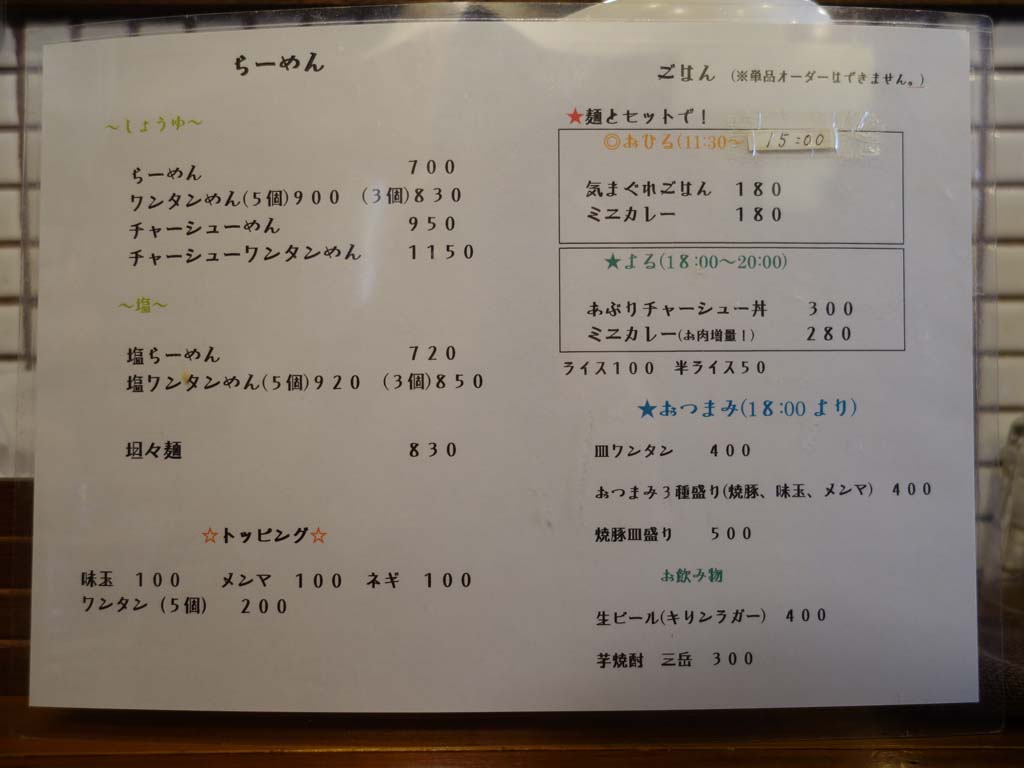 らーめん
～しょうゆ～
らーめん 700
ワンタンめん(5個)900 (3個)830
チャーシューめん 950
チャーシューワンタンめん 1150
～塩～
塩らーめん 720
塩ワンタンめん(5個)920 (3個)850
坦々麺 830
☆トッピング☆
味玉 100 メンマ 100 ネギ 100
ワンタン (5個) 200
ごはん (※単品オーダーはできません。)
★麺とセットで！
◎おひる(11:30～ 15:00
気まぐれごはん 180
ミニカレー 180
★よる(18:00～20:00)
あぶりチャーシュー丼 300
ミニカレー(お肉増量！) 280
ライス100 半ライス50
★おつまみ(18:00 より)
皿ワンタン 400
おつまみ3種盛り(焼豚、味玉、メンマ) 400
焼豚皿盛り 500
お飲み物
生ビール(キリンラガー) 400
芋焼酎 三岳 300